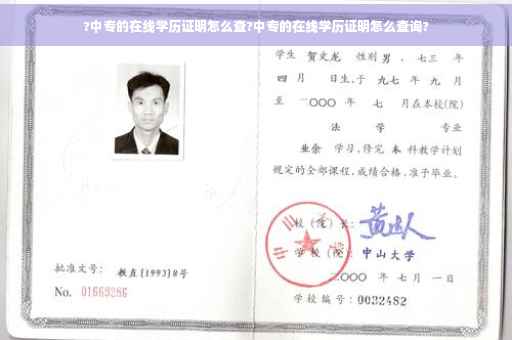 ?中专的在线学历证明怎么查?中专的在线学历证明怎么查询?
学生 贺文龙 性别 男 、七三 年
四 月 日生,于 九七 年 九 月
至 二〇〇〇 年 七 月在本校(院)
法 学 专业
业余 学习,修完 本 科教学计划
规定的全部课程,成绩合格,准予毕业。
校(院)长:
学校(院): 中山大学
二〇〇〇 年 七 月 一 日
学校编号: 0032482
批准文号: 教直[1993]8号
No. 01669286